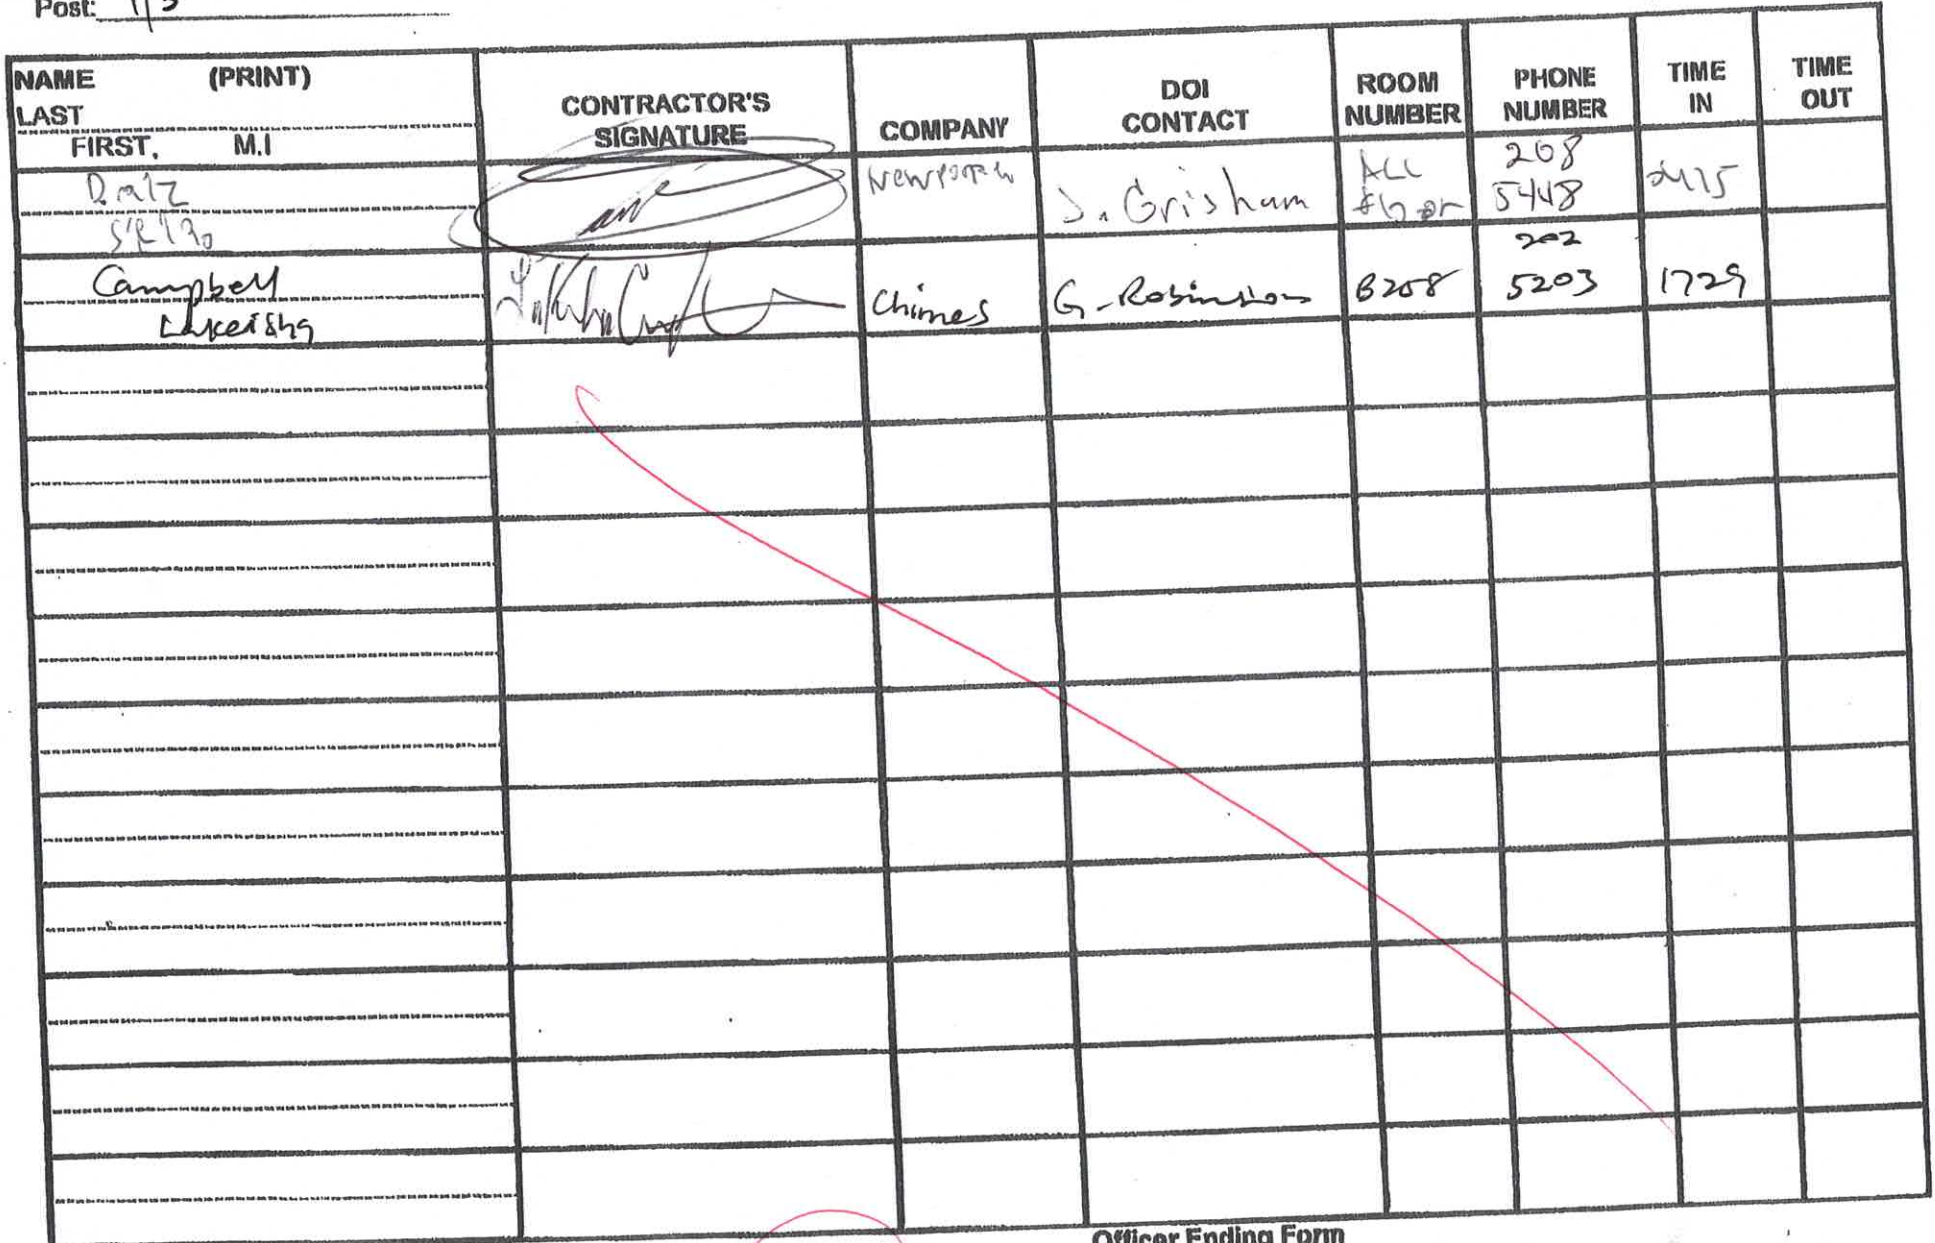 Post:
NAME (PRINT)
LAST
FIRST, M.I
CONTRACTOR'S
SIGNATURE
COMPANY
DOI
CONTACT
ROOM
NUMBER
PHONE
NUMBER
TIME
IN
TIME
OUT
J. Grisham
ALL
208
5448
Campbell
Lakeisha
Chimes
G. Robinson
B208
202
5203
1729
Officer Ending Form